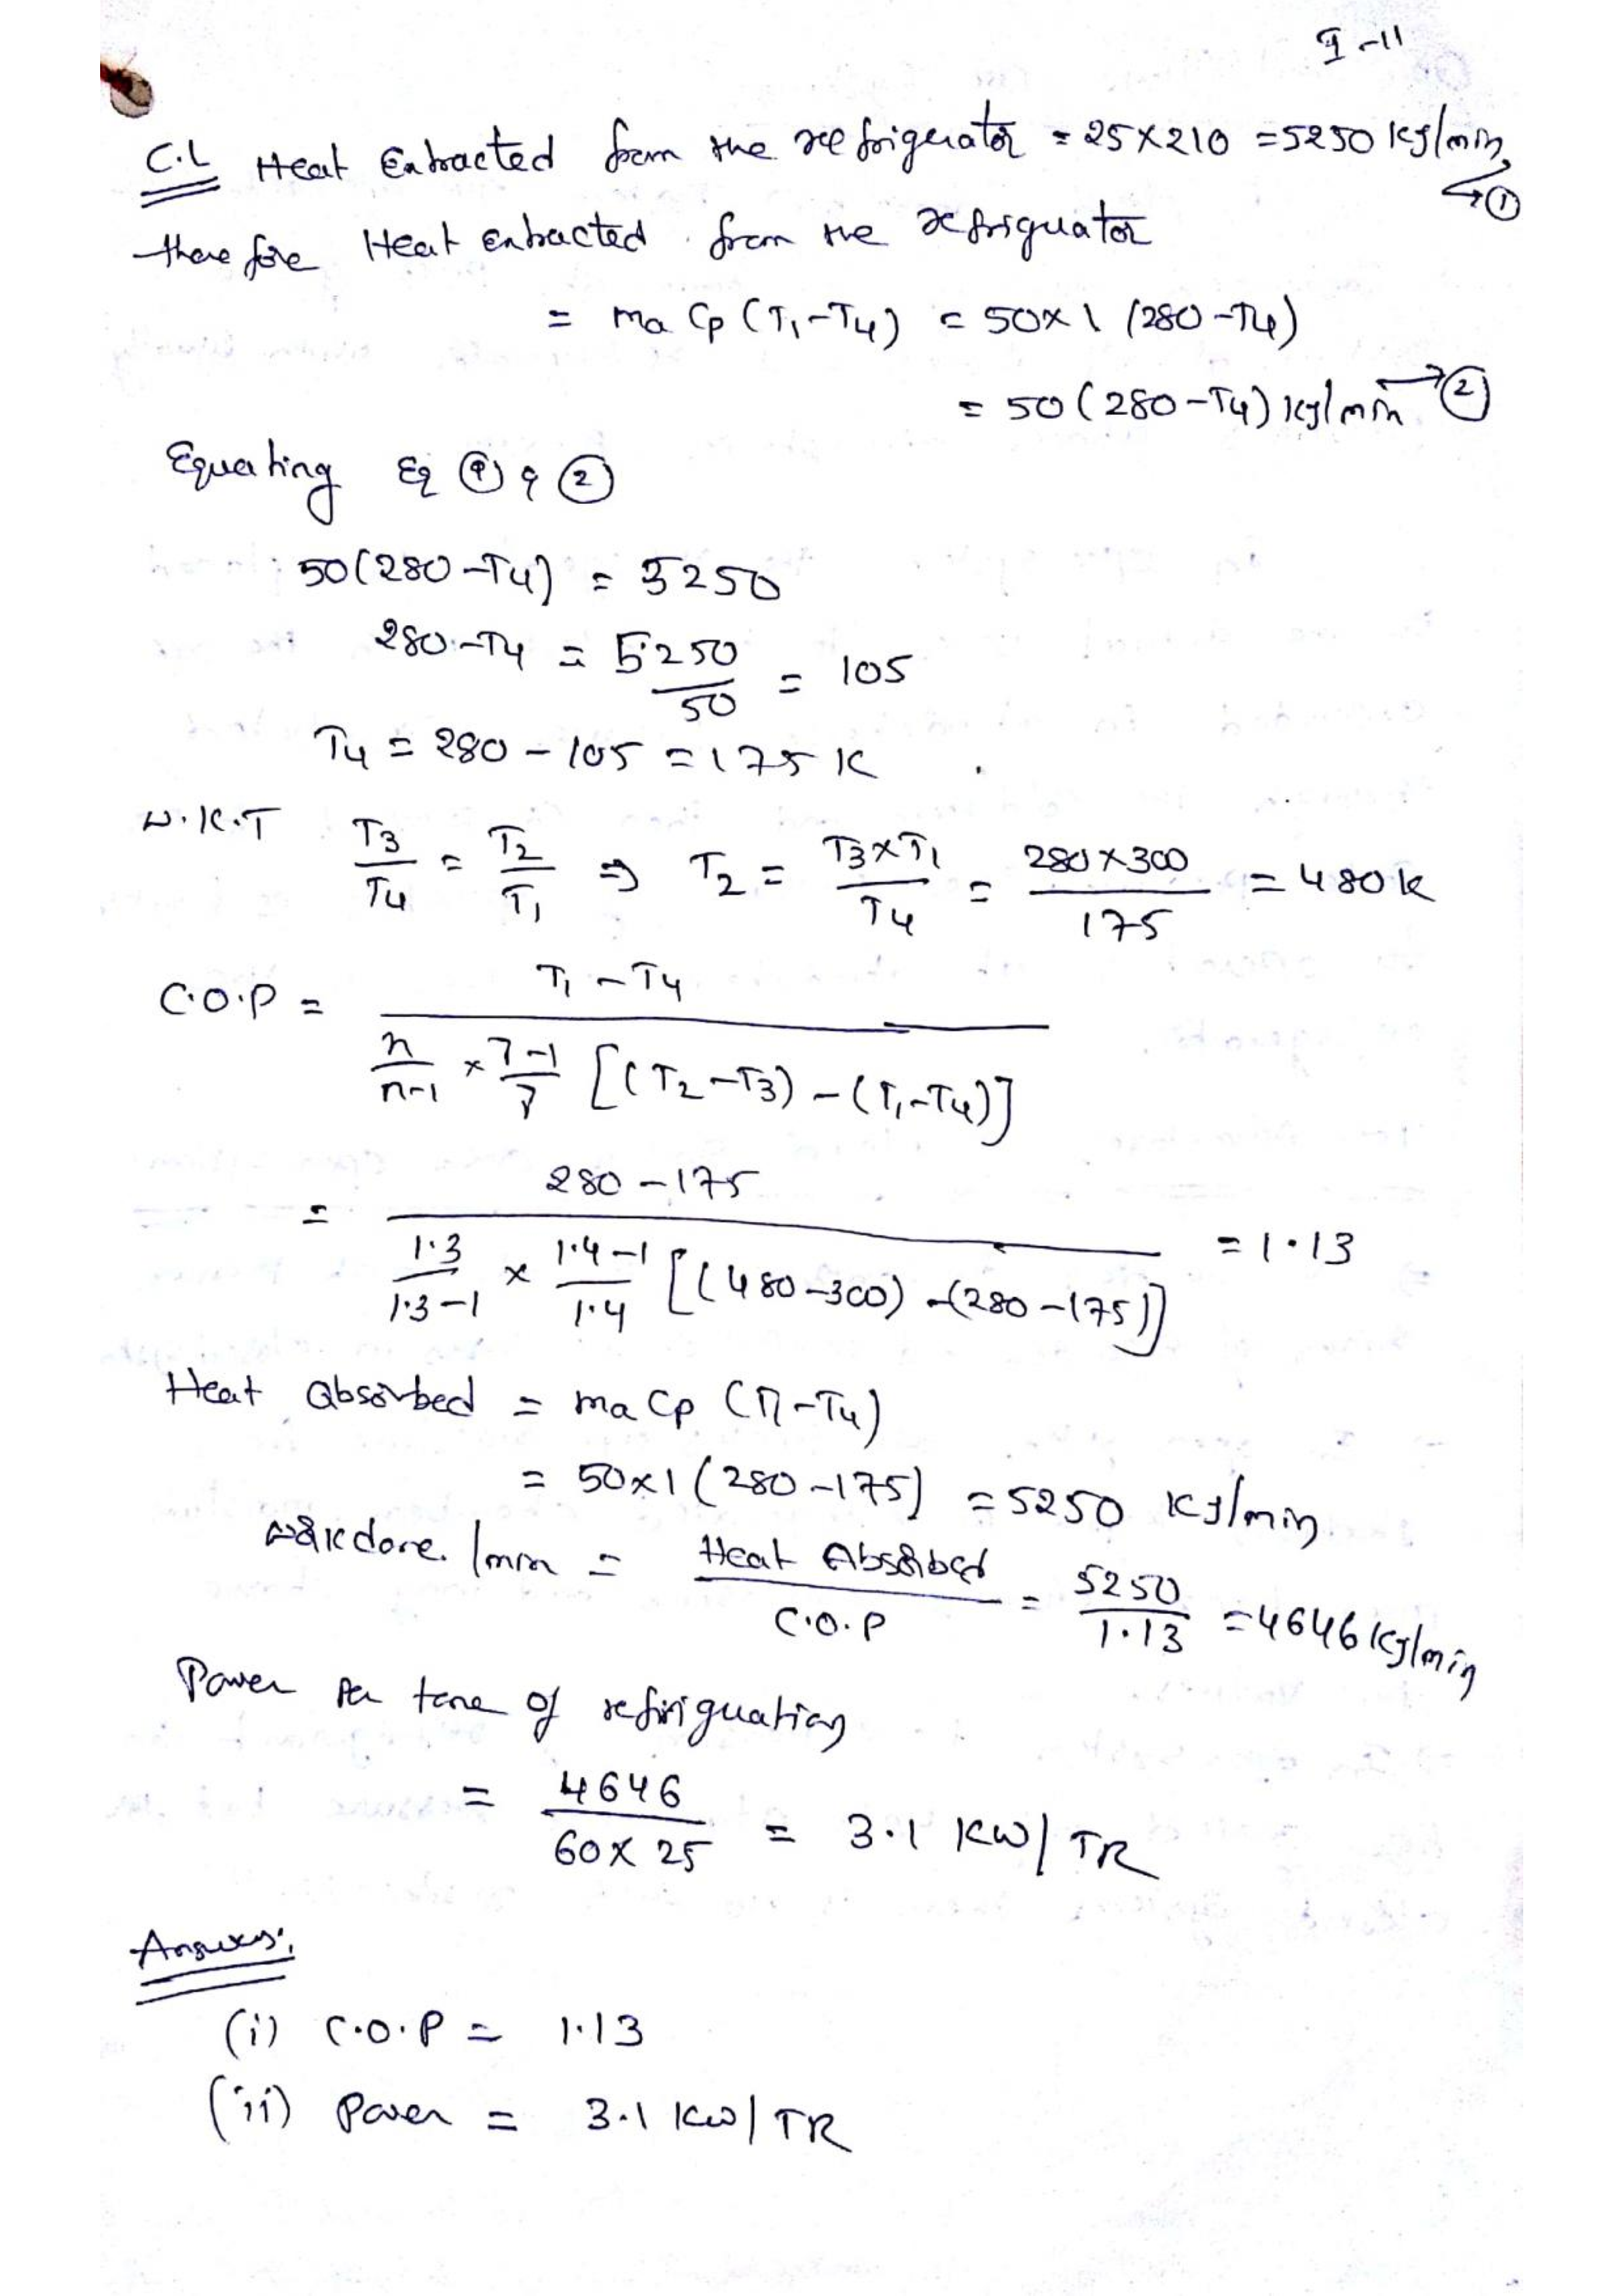 I-11
C.L Heat Extracted from the refrigerator = 25×210 = 5250 KJ/min → ①
therefore Heat extracted from the refrigerator
= ma Cp (T1-T4) = 50×1 (280-T4)
= 50(280-T4) KJ/min → ②
Equating Eq ① & ②
50(280-T4) = 5250
280-T4 = 5250/50 = 105
T4 = 280-105 = 175 K
W.K.T T3/T4 = T2/T1 ⇒ T2 = T3×T1/T4 = 280×300/175 = 480K
C.O.P = T1-T4 / n/n-1 × γ-1/γ [(T2-T3)-(T1-T4)]
= 280-175 / 1.3/1.3-1 × 1.4-1/1.4 [(480-300)-(280-175)] = 1.13
Heat absorbed = ma Cp (T1-T4)
= 50×1(280-175) = 5250 KJ/min
workdone/min = Heat Absorbed/C.O.P = 5250/1.13 = 4646 KJ/min
Power per tone of refriguation
= 4646/60×25 = 3.1 KW/TR
Answers:
(i) C.O.P = 1.13
(ii) Power = 3.1 KW/TR